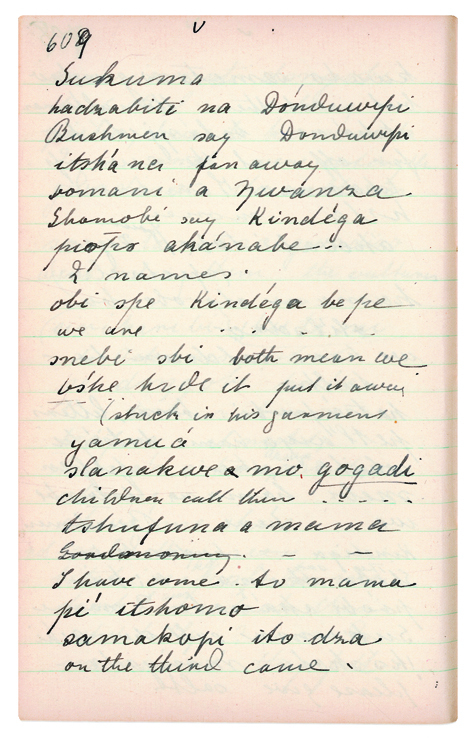 609
Sukuma
hadzabiti na Dónduwipi
Bushmen say Donduwipi
itshána far away
somani a Nwanza
Shamobi say Kindéga
akánabe...
2 names.
obi spe Kindéga be pe
we are . . . .
snebi sbi both mean we
hide it put it away
(stuck in his garment
yamuá
slanakwe a mo gogadi
children call then . . . . .
tshufuna a mama
Goodmorning. – –
I have come to mama
pí itshomo
samakopi ito dza
on the third came .